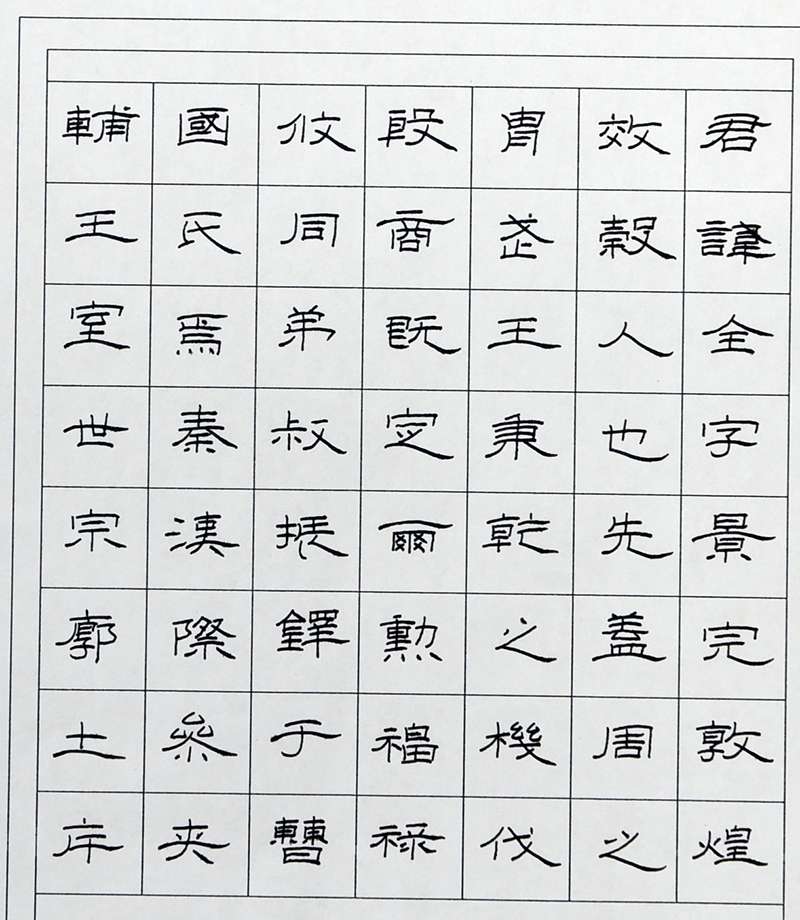 君諱全字景完敦煌
效穀人也先蓋周之
胄武王秉乾之機伐
殷商既定爾勳福祿
攸同弟叔振鐸于曹
國氏焉秦漢際參夾
輔王室世宗廓土斥